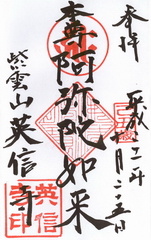 奉拝
平成二十二年
十月二十五日
本尊阿弥陀如来
紫雲山英信寺
英信寺印